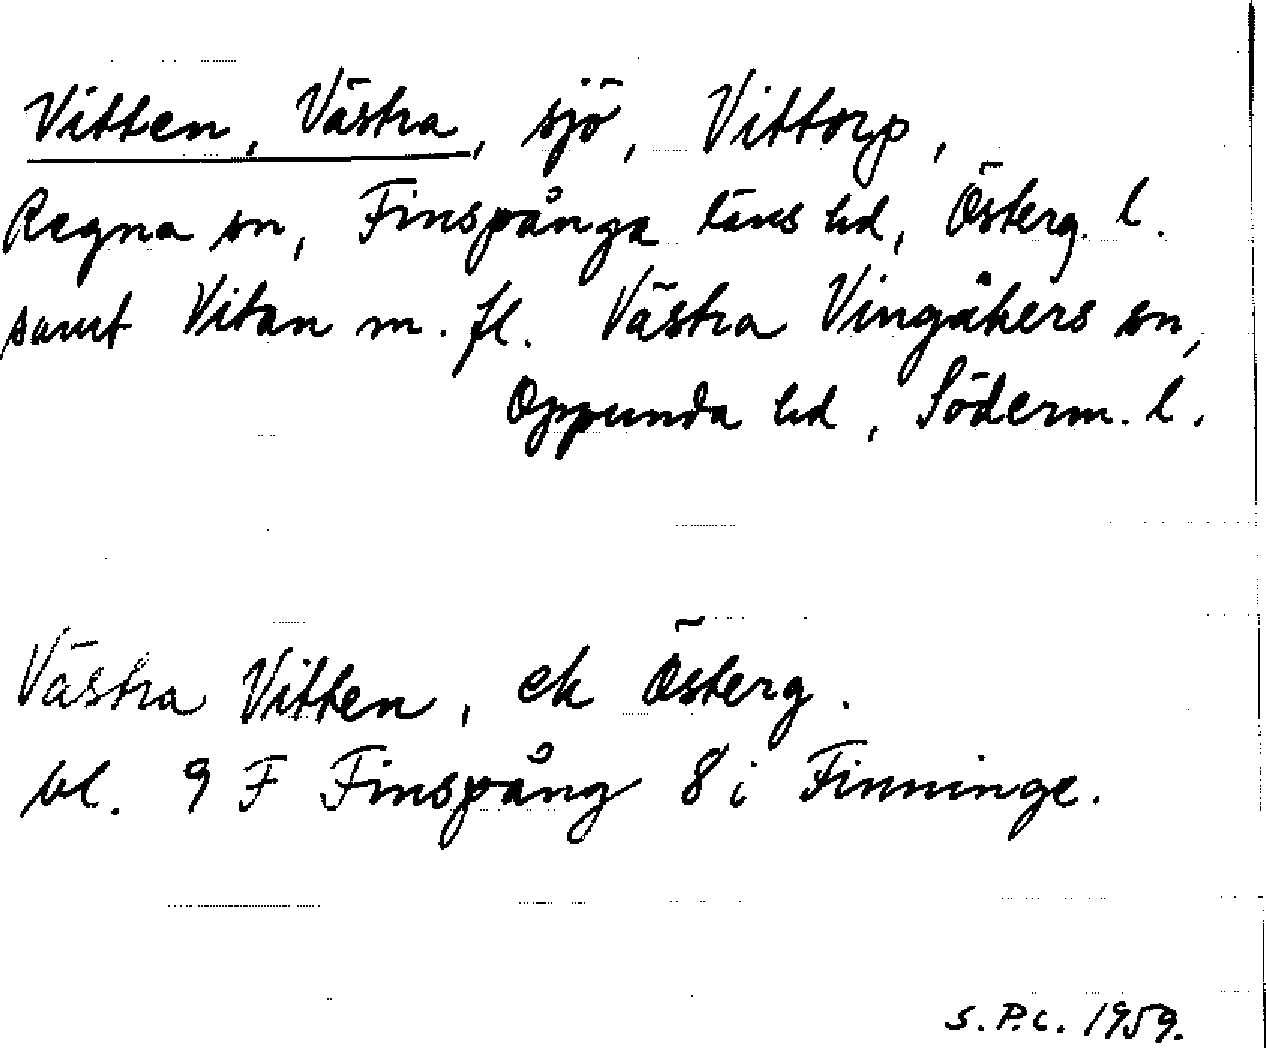 Vitten, Västra, sjö, Vittorp,
Regna sn, Finspånga läns hd, Österg. l.
samt Vitan m. fl. Västra Vingåkers sn,
Oppunda hd, Söderm. l.
Västra Vitten, ek Österg.
bl. 9 F Finspång 8 i Finninge.
S.P.C. 1959.